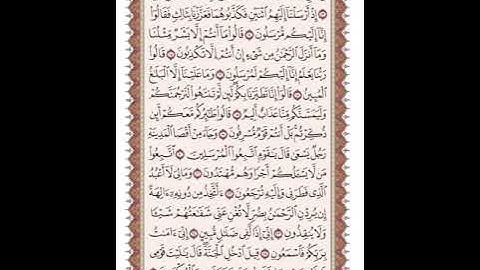 إِذْ أَرْسَلْنَا إِلَيْهِمُ اثْنَيْنِ فَكَذَّبُوهُمَا فَعَزَّزْنَا بِثَالِثٍ فَقَالُوا
إِنَّا إِلَيْكُم مُّرْسَلُونَ ۝ قَالُوا مَا أَنتُمْ إِلَّا بَشَرٌ مِّثْلُنَا
وَمَا أَنزَلَ الرَّحْمَٰنُ مِن شَيْءٍ إِنْ أَنتُمْ إِلَّا تَكْذِبُونَ ۝ قَالُوا
رَبُّنَا يَعْلَمُ إِنَّا إِلَيْكُمْ لَمُرْسَلُونَ ۝ وَمَا عَلَيْنَا إِلَّا الْبَلَٰغُ
الْمُبِينُ ۝ قَالُوا إِنَّا تَطَيَّرْنَا بِكُمْ لَئِن لَّمْ تَنتَهُوا لَنَرْجُمَنَّكُمْ
وَلَيَمَسَّنَّكُم مِّنَّا عَذَابٌ أَلِيمٌ ۝ قَالُوا طَٰئِرُكُم مَّعَكُمْ أَئِن
ذُكِّرْتُم بَلْ أَنتُمْ قَوْمٌ مُّسْرِفُونَ ۝ وَجَاءَ مِنْ أَقْصَا الْمَدِينَةِ
رَجُلٌ يَسْعَىٰ قَالَ يَٰقَوْمِ اتَّبِعُوا الْمُرْسَلِينَ ۝ اتَّبِعُوا
مَن لَّا يَسْـَٔلُكُمْ أَجْرًا وَهُم مُّهْتَدُونَ ۝ وَمَا لِيَ لَا أَعْبُدُ
الَّذِي فَطَرَنِي وَإِلَيْهِ تُرْجَعُونَ ۝ ءَأَتَّخِذُ مِن دُونِهِ ءَالِهَةً
إِن يُرِدْنِ الرَّحْمَٰنُ بِضُرٍّ لَّا تُغْنِ عَنِّي شَفَٰعَتُهُمْ شَيْـًٔا
وَلَا يُنقِذُونِ ۝ إِنِّي إِذًا لَّفِي ضَلَٰلٍ مُّبِينٍ ۝ إِنِّي ءَامَنتُ
بِرَبِّكُمْ فَاسْمَعُونِ ۝ قِيلَ ادْخُلِ الْجَنَّةَ قَالَ يَٰلَيْتَ قَوْمِي